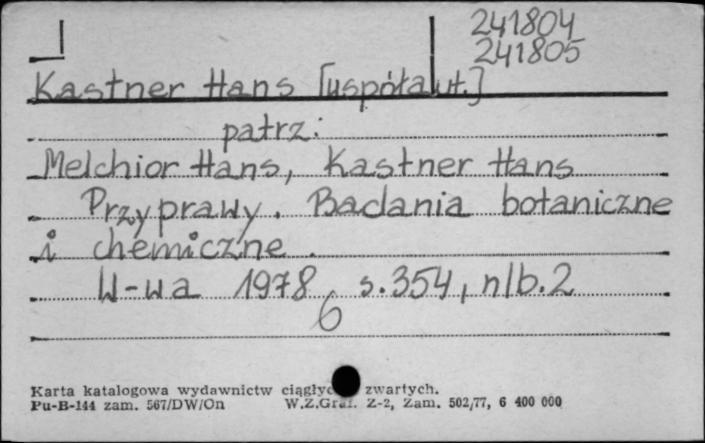 241804
241805
Kastner Hans [współaut.]
patrz:
Melchior Hans, Kastner Hans
Przyprawy. Badania botaniczne
i chemiczne.
W-wa 1978 s.354, nlb.2
6
Karta katalogowa wydawnictw zwartych.
Pu-B-144 zam. 567/DW/On W.Z.Graf. Z-2, Zam. 502/77, 6 400 000